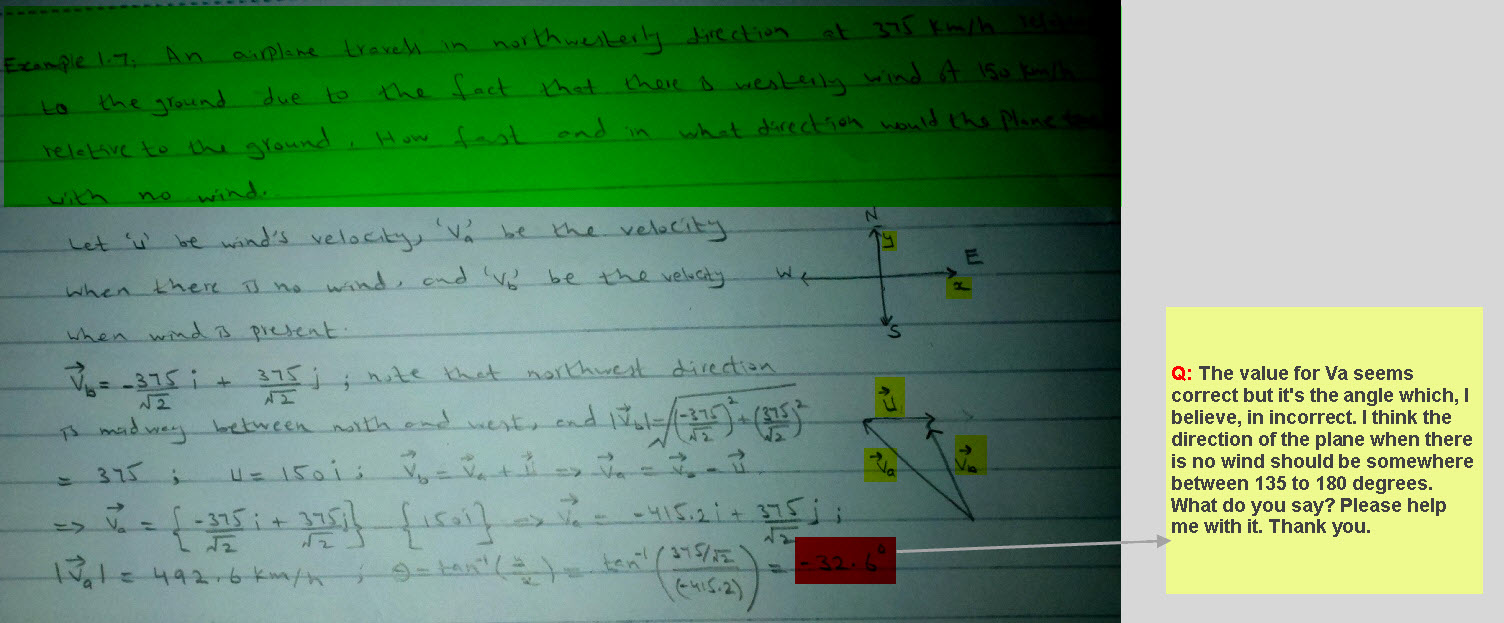 Example 1.7: An airplane travels in northwesterly direction at 375 km/h
to the ground due to the fact that there is westerly wind of 150 km/h
relative to the ground. How fast and in what direction would the plane
with no wind.
Let 'u' be wind's velocity, 'Va' be the velocity
when there is no wind, and 'Vb' be the velocity
when wind is present.
N
y
W
E
x
S
V⃗b = -375/√2 i + 375/√2 j ; note that northwest direction
is midway between north and west, and |V⃗b| = √((-375/√2)² + (375/√2)²)
= 375 ; u = 150i ; V⃗b = V⃗a + u⃗ => V⃗a = V⃗b - u⃗
=> V⃗a = {-375/√2 i + 375/√2 j} {150i} => V⃗a = -415.2i + 375/√2 j ;
|V⃗a| = 492.6 km/h ; θ = tan⁻¹(y/x) = tan⁻¹((375/√2)/(-415.2)) = -32.6°
u⃗
V⃗a
V⃗b
Q: The value for Va seems
correct but it's the angle which, I
believe, in incorrect. I think the
direction of the plane when there
is no wind should be somewhere
between 135 to 180 degrees.
What do you say? Please help
me with it. Thank you.